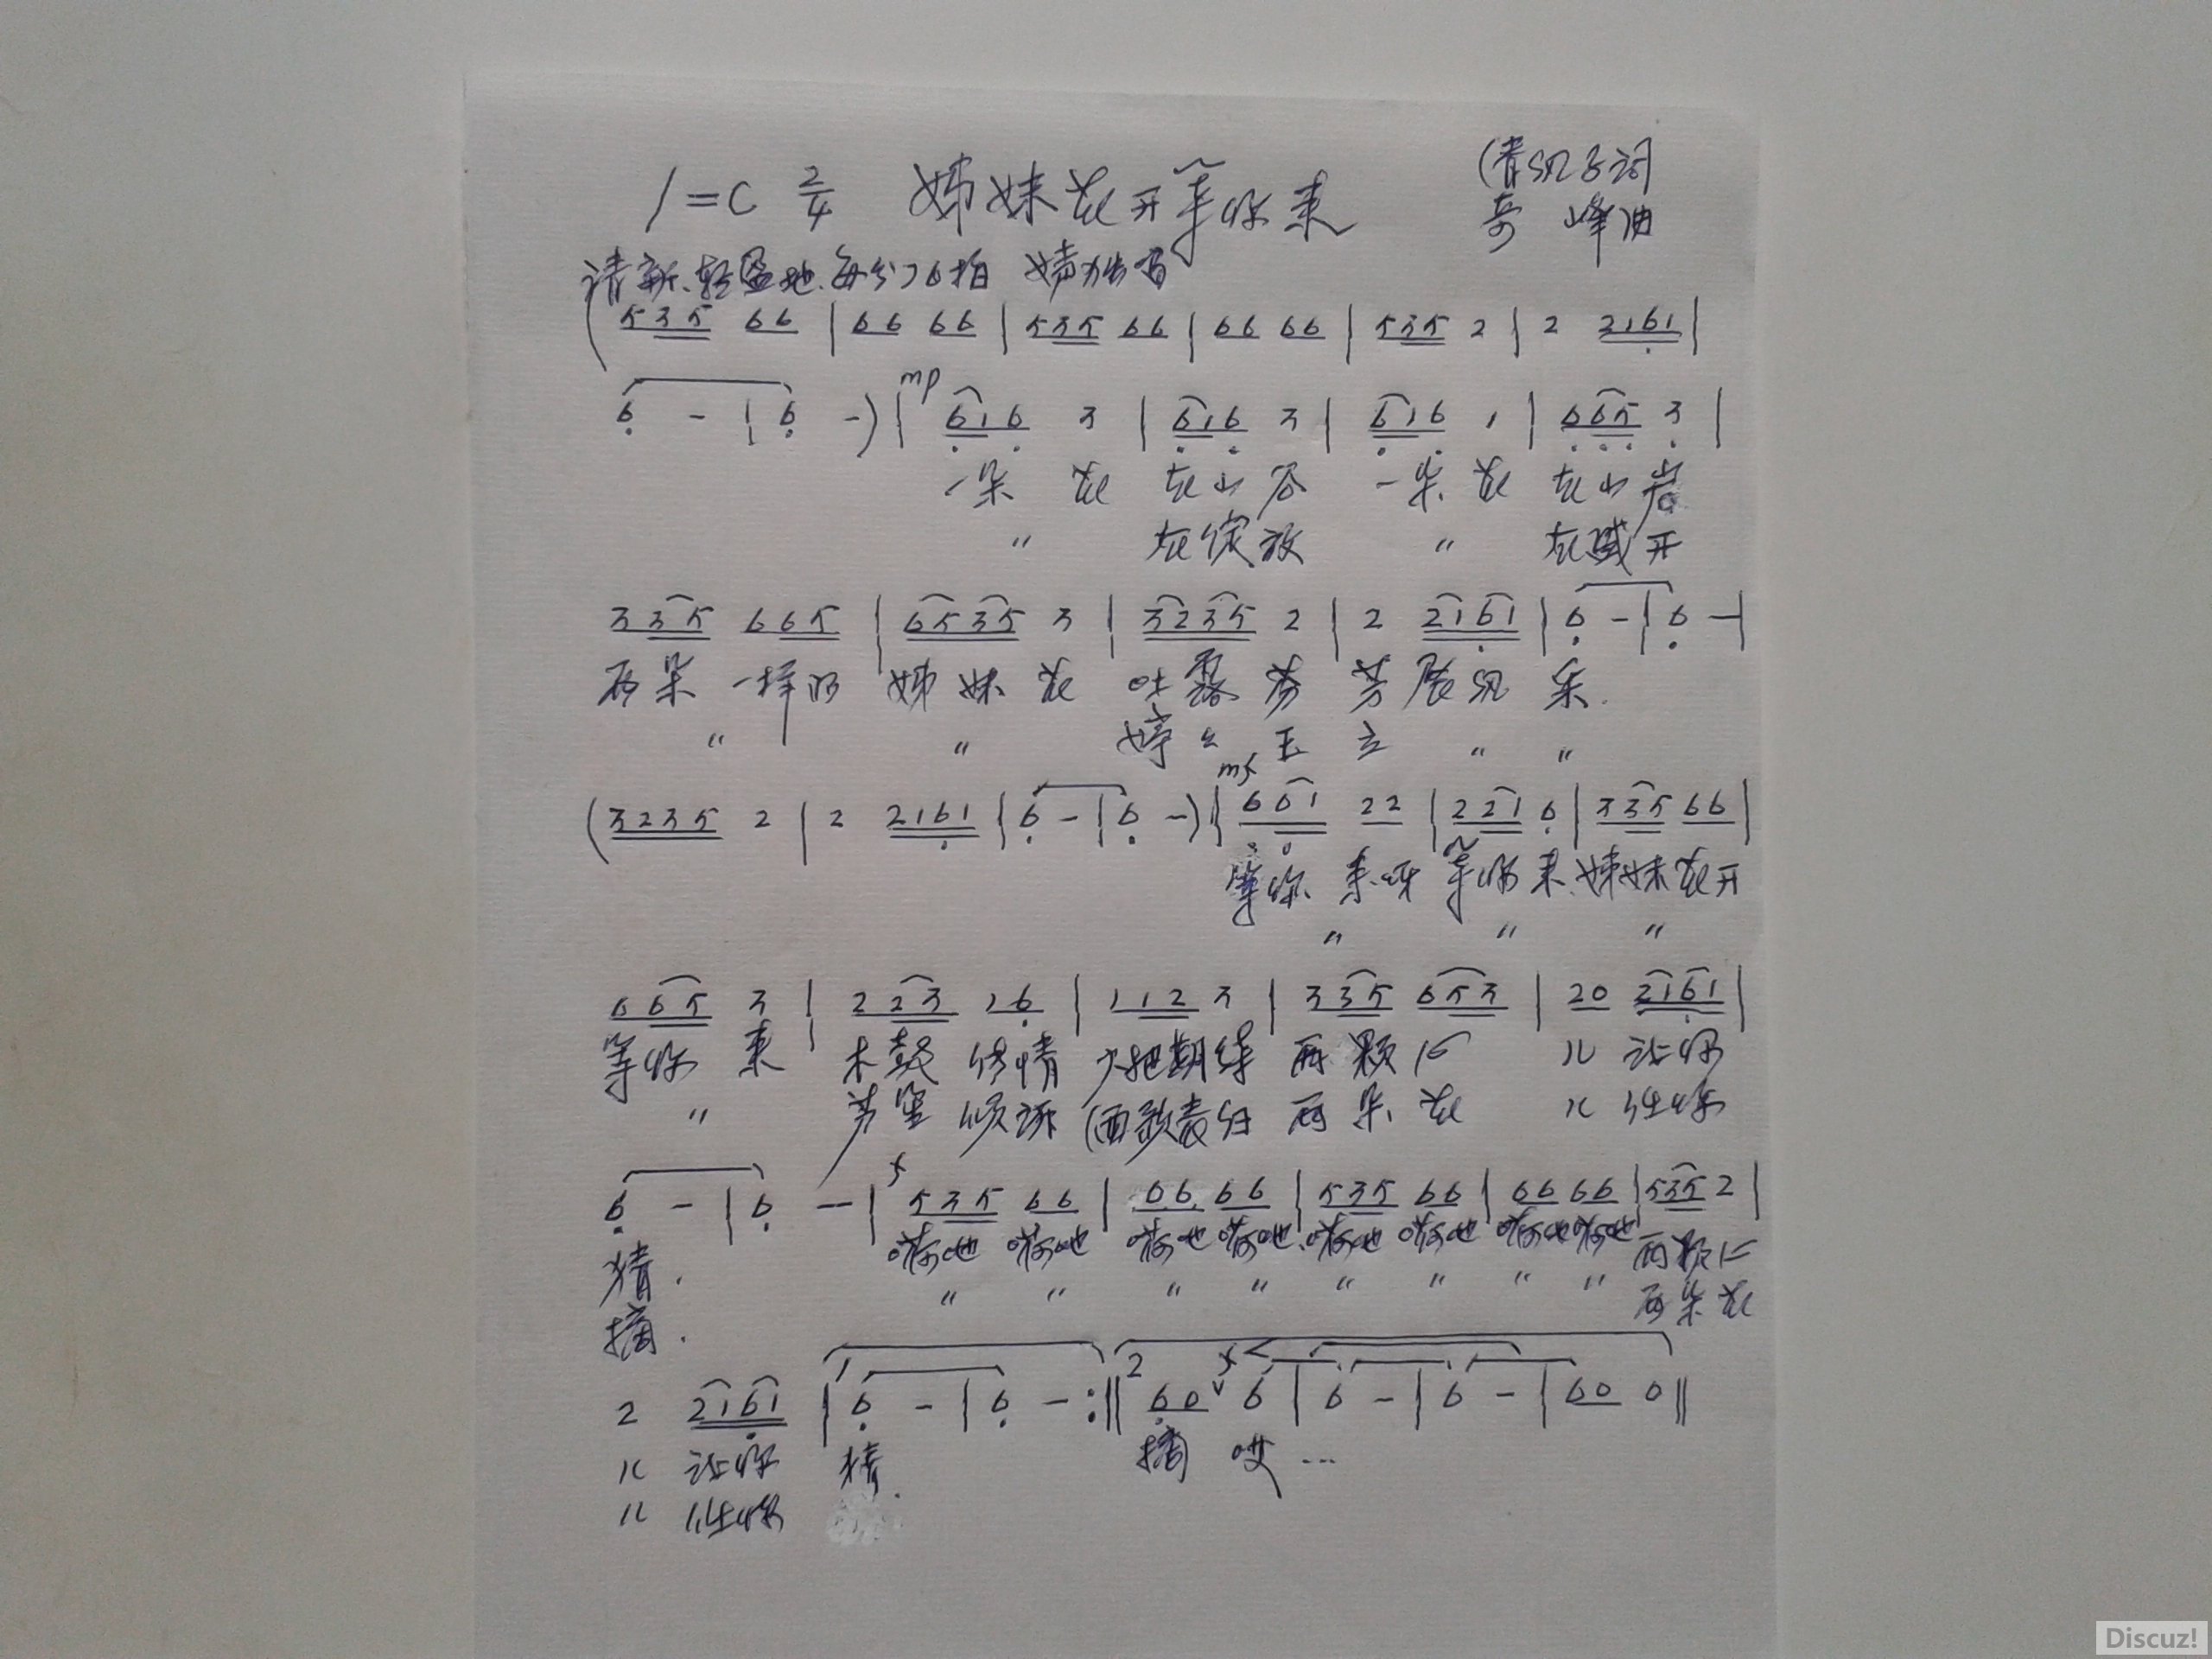 1=C 2/4 姊妹花开等你来 (青纨子词
奇 峰曲
清新、轻盈地 每分76拍
(535 66 | 66 66 | 535 66 | 66 66 | 535 2 | 2 2161 |
6 - | 6 -) | mp 616 3 | 616 3 | 616 1 | 665 3 |
一朵 花 在山谷 一朵 花 在山岩
〃 在绽放 〃 在盛开
335 665 | 6535 3 | 3235 2 | 2 2161 | 6 - | 6 - |
两朵 一样的 姊妹花 吐露芬 芳展风 采.
〃 〃 婷々玉 立 〃 〃
(3235 2 | 2 2161 | 6 - | 6 -) | mf 661 22 | 221 6 | 335 66 |
等你 来呀 等你来 姊妹花开
〃 〃 〃
665 3 | 223 16 | 112 3 | 335 653 | 20 2161 |
等你 来 木鼓 传情 期待 两颗心 儿 让你
〃 芦笙 倾诉 两朵 花 儿 任你
6 - | 6 - | f 535 66 | 66 66 | 535 66 | 66 66 | 535 2 |
猜. 嗬哋 嗬哋 嗬哋 嗬哋 嗬哋 嗬哋 嗬哋 嗬哋 两颗心
摘. 〃 〃 〃 〃 〃 〃 〃 〃 两朵花
2 2161 | 1 6 - | 6 - :|| 2 60 ∨ f 6 | 6 - | 6 - | 60 0 ||
儿 让你 猜. 摘 哎 …
儿 任你
Discuz!